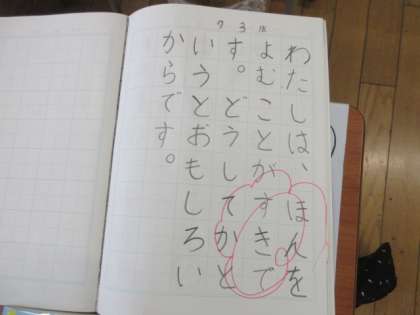 わたしは、ほんを
よむことがすきで
す。どうしてかと
いうとおもしろい
からです。